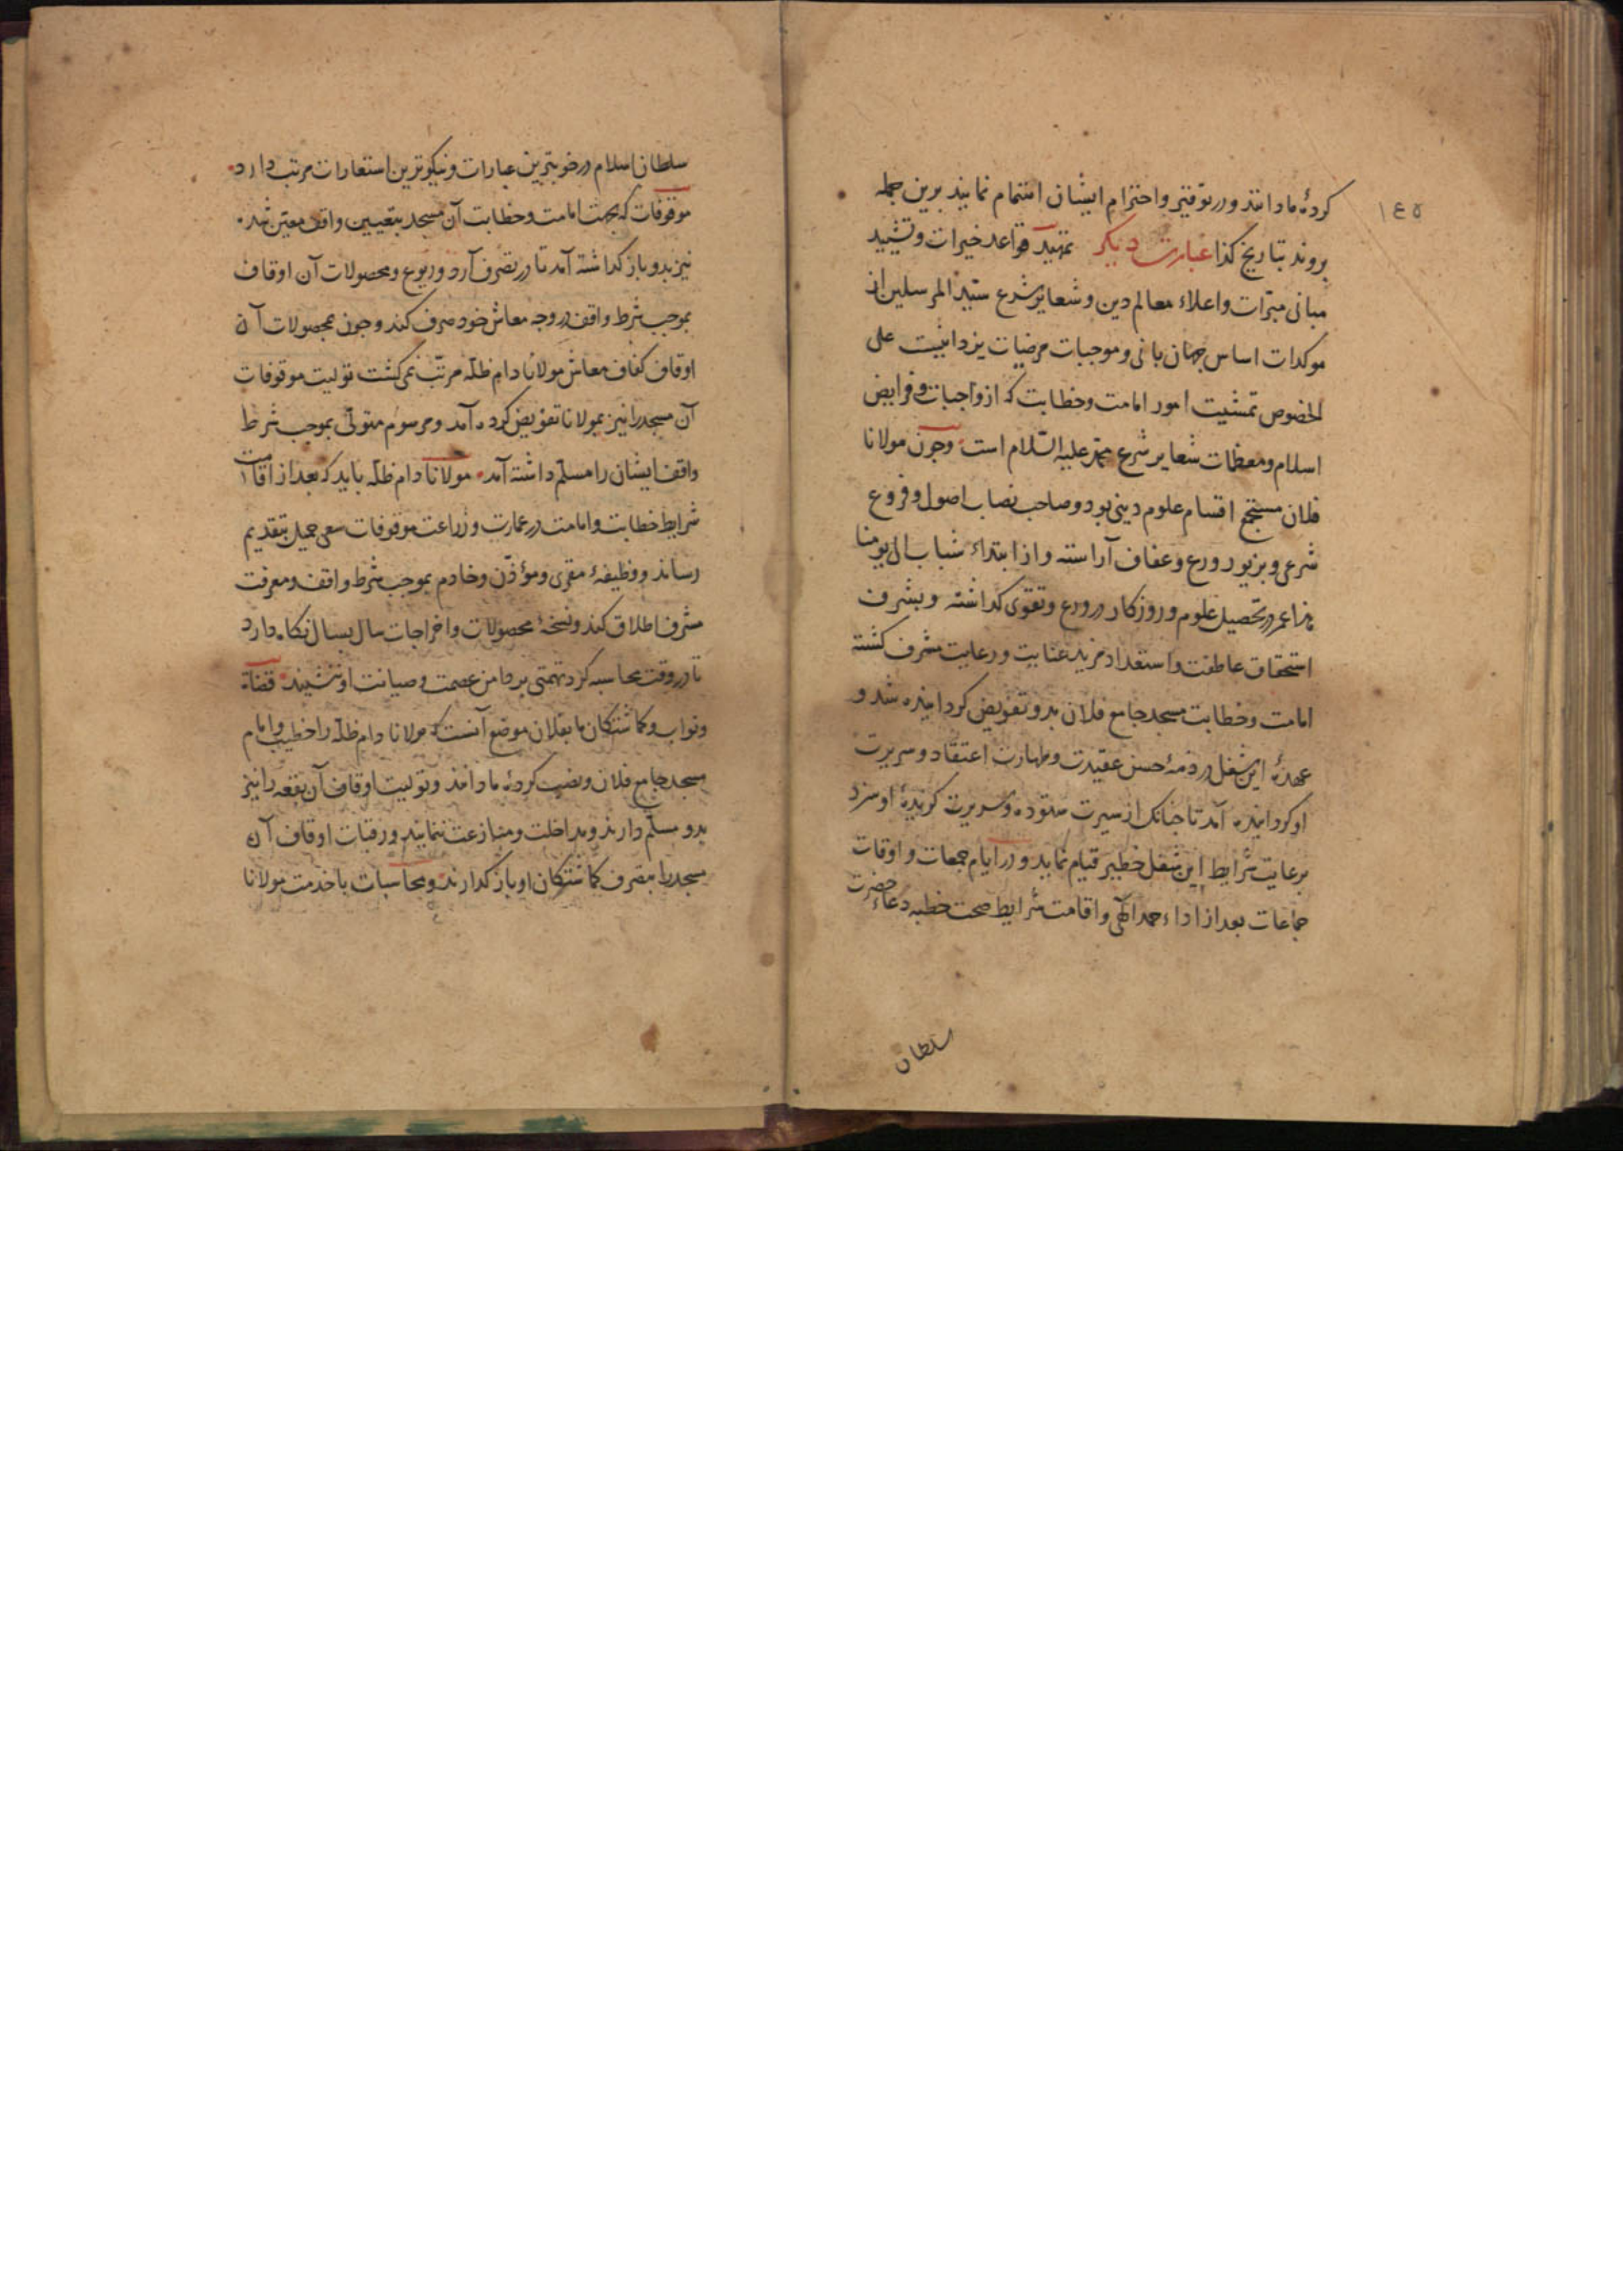 ١٤٥
کردهٔ ما دانند و در توقیر و احترام ایشان اهتمام نمایند برین جمله
بروند بتاریخ کذا عبارت دیکر تمهید قواعد خیرات و تشیید
مبانی مبرّات و اعلاء معالم دین و شعایر شرع سیّد المرسلین از
موکدات اساس جهان بانی و موجبات مرضیات یزدانیست علی
الخصوص تمشیت امور امامت و خطابت که از واجبات و فرایض
اسلام و معظمات شعایر شرع محمّد علیه السّلام است وجون مولانا
فلان مستجمع اقسام علوم دینی بود و صاحب نصاب اصول و فروع
شرعی و بزیور ورع و عفاف آراسته و از ابتداء شباب الی یومنا
هذا عمر در تحصیل علوم و روزکار در ورع و تقوی کذاشته و بشرف
استحقاق عاطفت و استعداد مزید عنایت و رعایت مشرف کشته
امامت و خطابت مسجد جامع فلان بدو تفویض کردانیده شد و
عهدهٔ این شغل در ذمهٔ حسن عقیدت و طهارت اعتقاد و سریرت
او کردانیده آمد تا جنانک از سیرت ستوده و سریرت کزیدهٔ او سزد
برعایت شرایط این شغل خطیر قیام نماید و در ایام جمعات و اوقات
جماعات بعد از اداء حمد الهی و اقامت شرایط صحت خطبه دعاء حضرت
سلطان
سلطان اسلام در خوبترین عبارات و نیکوترین استعارات مرتب دارد
موقوفات که بجهت امامت و خطابت آن مسجد بتعیین واقف معین شد
نیز بدو باز کداشته آمد تا در تصرف آرد و ریوع و محصولات آن اوقاف
بموجب شرط واقف در وجه معاش خود صرف کند وجون محصولات آن
اوقاف کفاف معاش مولانا دام ظلّه مرتّب نمی کشت تولیت موقوفات
آن مسجد را نیز بمولانا تفویض کرده آمد و مرسوم متولّی بموجب شرط
واقف ایشان را مسلّم داشته آمد مولانا دام ظلّه باید که بعد از اقامت
شرایط خطابت و امامت در عمارت و زراعت موقوفات سعی جمیل بتقدیم
رساند و وظیفهٔ مقری و مؤذّن و خادم بموجب شرط واقف و معرفت
مشرف اطلاق کند و نسخهٔ محصولات و اخراجات سال بسال نکاه دارد
تا در وقت محاسبه کرد تهمتی بر دامن عصمت و صیانت او ننشیند قضاة
و نواب و کماشتکان ما بفلان موضع آنست که مولانا دام ظلّه را خطیب و امام
مسجد جامع فلان و نصب کردهٔ ما دانند و تولیت اوقاف آن بقعه را نیز
بدو مسلّم دارند و مداخلت و منازعت ننمایند و رقبات اوقاف آن
مسجد را بتصرف کماشتکان او باز کذارند و محاسبات با خدمت مولانا